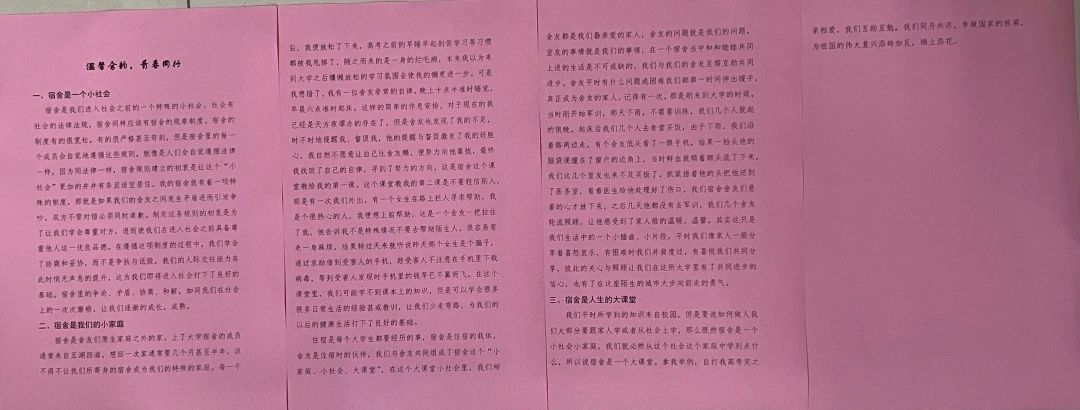 温馨舍韵，青春同行
一、宿舍是一个小社会
宿舍是我们进入社会之前的一个特殊的小社会。社会有
社会的法律法规，宿舍同样应该有宿舍的规章制度，宿舍的
制度有的很宽松，有的很严格甚至苛刻，但是宿舍里的每一
个成员会自觉地遵循这些规则，就像是人们会自觉遵循法律
一样，因为同法律一样，宿舍规则建立的初衷是让这个“小
社会”更加的井井有条且适宜居住。我的宿舍就有着一项特
殊的制度，那就是如果我们的舍友之间发生矛盾进而引发争
吵，双方不管对错必须同时道歉。制定这条规则的初衷是为
了让我们学会尊重对方，进而使我们在进入社会之前具备尊
重他人这一优良品德。在遵循这项制度的过程中，我们学会
了协商和妥协，而不是争执与诋毁，我们的人际交往能力在
此时悄无声息的提升，这为我们即将进入社会打下了良好的
基础。宿舍里的争论、矛盾、协商、和解，如同我们在社会
上的一次次磨砺，让我们逐渐的成长，成熟。
二、宿舍是我们的小家庭
宿舍是舍友们原生家庭之外的家，上了大学宿舍的成员
通常来自五湖四海，想回一次家通常要几个月甚至半年，这
不得不让我们所寄身的宿舍成为我们的特殊的家庭。每一个
舍友都是我们最亲爱的家人，舍友的问题就是我们的问题，
室友的事情就是我们的事情，在一个宿舍当中和和睦睦共同
上进的生活是不可或缺的，我们与我们的舍友互帮互助共同
进步。舍友平时有什么问题或困难我们都第一时间伸出援手，
真正成为舍友的家人。记得有一次，那是刚来到大学的时候，
当时刚开始军训，那天下雨，不需要训练，我们几个人就起
的很晚，起床后我们几个人去食堂买饭，由于下雨，我们沿
着路两边走，有个舍友低头看了一眼手机，结果一抬头他的
脑袋便撞在了窗户的边角上，当时鲜血就顺着额头流了下来，
我们这几个室友也来不及买饭了，抓紧搭着他的头把他送到
了医务室，看着医生给他处理好了伤口，我们宿舍舍友们悬
着的心才放下来，之后几天他都没有去军训，我们几个舍友
轮流照顾，让他感受到了家人般的温暖、温馨。其实这只是
我们生活中的一个小插曲、小片段，平时我们像家人一般分
享着喜怒哀乐，有困难时我们并肩度过，有喜悦我们共同分
享，彼此的关心与照顾让我们在这所大学里有了共同进步的
信心，也有了在这座陌生的城市大步向前走的勇气。
三、宿舍是人生的大课堂
我们平时所学到的知识来自校园，但是要说如何做人我
们大部分要跟家人学或者从社会上学，那么既然宿舍是一个
小社会小家庭，我们就必然从这个社会这个家庭中学到点什
么，所以说宿舍是一个大课堂。拿我举例，自打我高考完之
后，我便放松了下来，高考之前的早睡早起刻苦学习等习惯
都被我甩掉了，随之而来的是一身的烂毛病，本来我以为来
到大学之后慵懒放松的学习氛围会使我的懒更进一步，可是
我想错了，我有一位舍友非常的自律，晚上十点半准时睡觉，
早晨六点准时起床，这样的简单的作息安排，对于现在的我
已经是天方夜谭办的存在了，但是舍友也发现了我的不足，
时不时地提醒我、督促我，他的提醒与督促激发了我的好胜
心，我自然不愿意让自己比舍友懒，便努力向他靠拢，最终
我找回了自己的自律，寻到了努力的方向，这是宿舍这个课
堂教给我的第一课。这个课堂教我的第二课是不要轻信别人，
那是有一次我们外出，有一个女生在路上拦人寻求帮助，我
是个很热心的人，我便想上前帮助，这是一个舍友一把拉住
了我，他告诉我不是特殊情况不要去帮助陌生人，很容易惹
来一身麻烦，结果转过天来就听说昨天那个女生是个骗子，
通过求助借到受害人的手机，趁受害人不注意在手机里下载
病毒，等到受害人发现时手机里的钱早已不翼而飞。在这个
课堂里，我们可能学不到课本上的知识，但是可以学会很多
很多日常生活的经验甚或教训，让我们少走弯路，为我们的
以后的健康生活打下了良好的基础。
住宿是每个大学生都要经历的事，宿舍是住宿的载体，
舍友是住宿时的伙伴，我们与舍友共同组成了宿舍这个“小
家庭、小社会、大课堂”，在这个大课堂小社会里，我们相
亲相爱，我们互助互勉，我们同舟共济，争做国家的栋梁，
为祖国的伟大复兴添砖加瓦，锦上添花。